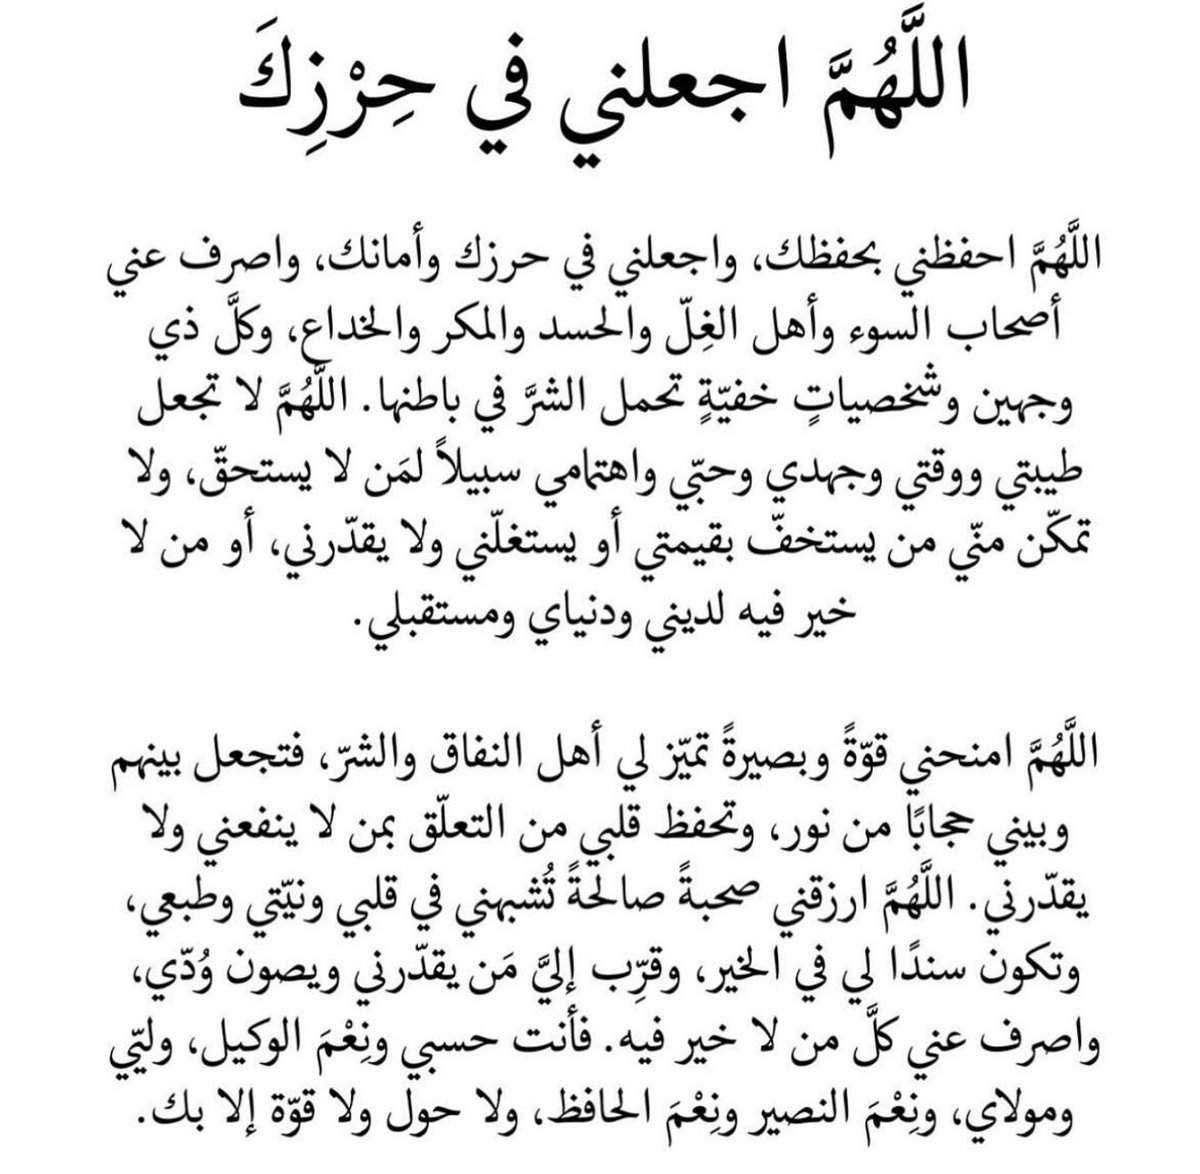 اللَّهُمَّ اجعلني في حِرْزِكَ
اللَّهُمَّ احفظني بحفظك، واجعلني في حرزك وأمانك، واصرف عني
أصحاب السوء وأهل الغِلّ والحسد والمكر والخداع، وكلَّ ذي
وجهين وشخصياتٍ خفيّةٍ تحمل الشرَّ في باطنها. اللَّهُمَّ لا تجعل
طيبتي ووقتي وجهدي وحبّي واهتمامي سبيلاً لمَن لا يستحقّ، ولا
تمكّن منّي من يستخفّ بقيمتي أو يستغلّني ولا يقدّرني، أو من لا
خير فيه لديني ودنياي ومستقبلي.
اللَّهُمَّ امنحني قوّةً وبصيرةً تميّز لي أهل النفاق والشرّ، فتجعل بينهم
وبيني حجابًا من نور، وتحفظ قلبي من التعلّق بمن لا ينفعني ولا
يقدّرني. اللَّهُمَّ ارزقني صحبةً صالحةً تُشبهني في قلبي ونيّتي وطبعي،
وتكون سندًا لي في الخير، وقرِّب إليَّ مَن يقدّرني ويصون وُدّي،
واصرف عني كلَّ من لا خير فيه. فأنت حسبي ونِعْمَ الوكيل، وليّي
ومولاي، ونِعْمَ النصير ونِعْمَ الحافظ، ولا حول ولا قوّة إلا بك.